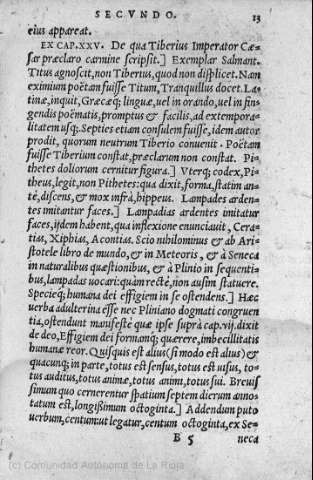 SECVNDO. 13
eius appareat.
EX CAP.XXV. De qua Tiberius Imperator Cæ-
sar præclaro carmine scripsit.] Exemplar Salmant.
Titus agnoscit, non Tibertus, quod non displicet. Nam
eximium poëtam fuisse Titum, Tranquillus docet. La-
tinæ, inquit, Græcæq; linguæ, uel in orando, uel in fin-
gendis poëmatis, promptus & facilis, ad extempora-
litatem usq; Septies etiam consulem fuisse, idem autor
prodit, quorum neutrum Tiberio conuenit. Poëtam
fuisse Tiberium constat, præclarum non constat. Pi-
thetes doliorum cernitur figura.] Vterq; codex, Pi-
theus, legit, non Pithetes: qua dixit, forma, statim an-
tè, discens, & mox infrà, hippeus. Lampades arden-
tes imitantur faces.] Lampadias ardentes imitatur
faces, ijdem habent, qua inflexione enunciauit, Cera-
tias, Xiphias, Acontias. Scio nihilominus & ab Ari-
stotele libro de mundo, & in Meteoris, & à Seneca
in naturalibus quæstionibus, & à Plinio in sequenti-
bus, lampadas uocari: quàm rectè, non ausim statuere.
Specieq; humana dei effigiem in se ostendens.] Hæc
uerba adulterina esse nec Pliniano dogmati congruen
tia, ostendunt manifestè quæ ipse suprà cap. vij. dixit
de deo, Effigiem dei formamq; quærere, imbecillitatis
humanæ reor. Quisquis est alius (si modo est alius) &
quacunq; in parte, totus est sensus, totus est uisus, to-
tus auditus, totus animæ, totus animi, totus sui. Breuis
simum quo cernerentur spatium septem dierum anno-
tatum est, longissimum octoginta.] Addendum puto
uerbum, centum ut legatur, centum octoginta, ex Se-
B 5 neca
(c) Comunidad Autónoma de La Rioja